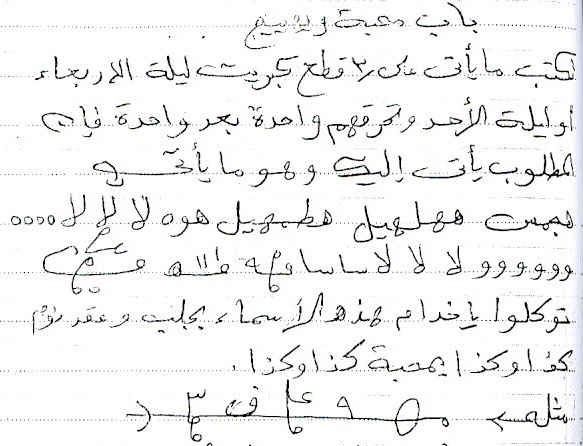 باب محبة وتهييج
تكتب ما يأتى على ٣ قطع كبريت ليلة الاربعاء
أو ليلة الأحد وتحرقهم واحدة بعد واحدة فإن
المطلوب يأتى إليك وهو ما يأتى
مهلهيل هطهيل هوه لا لا لا ٥٥٥٥
وووووو لا لا لا ساسا
توكلوا ياخدام هذه الأسماء بجلب وعقد نوم
كذا وكذا بمحبة كذا وكذا.
مثله